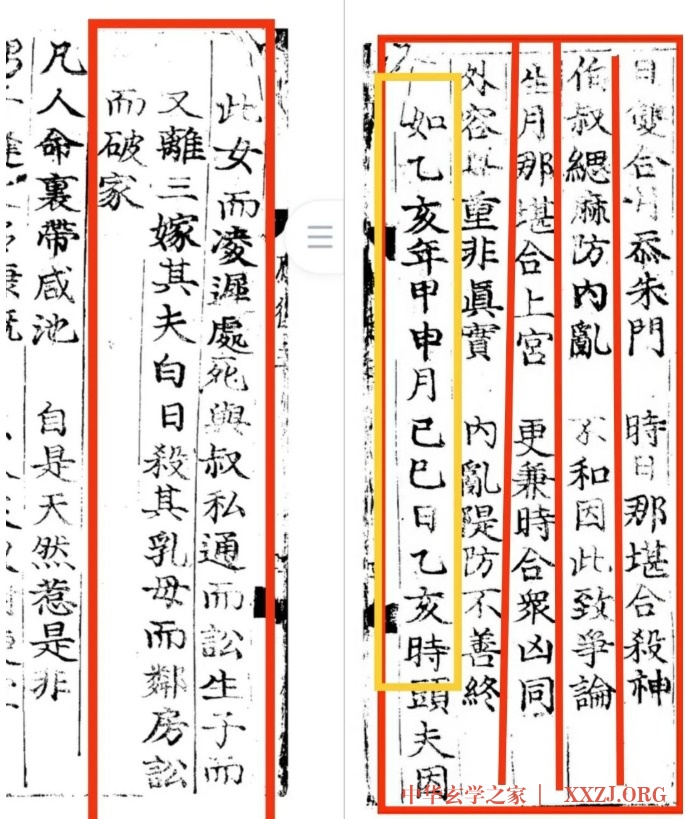 日雙合月忝朱門　時日那堪合殺神
伯叔緦麻防内亂　不和因此致爭論
生月那堪合上宮　更兼時合衆凶同
外容重非眞實　内亂隄防不善終
如乙亥年甲申月己巳日乙亥時頭夫因
此女而凌遲處死與叔私通而訟生子而
又離三嫁其夫白日殺其乳母而鄰房訟
而破家
凡人命裏帶咸池　自是天然惹是非
中华玄学之家｜ XXZJ.ORG